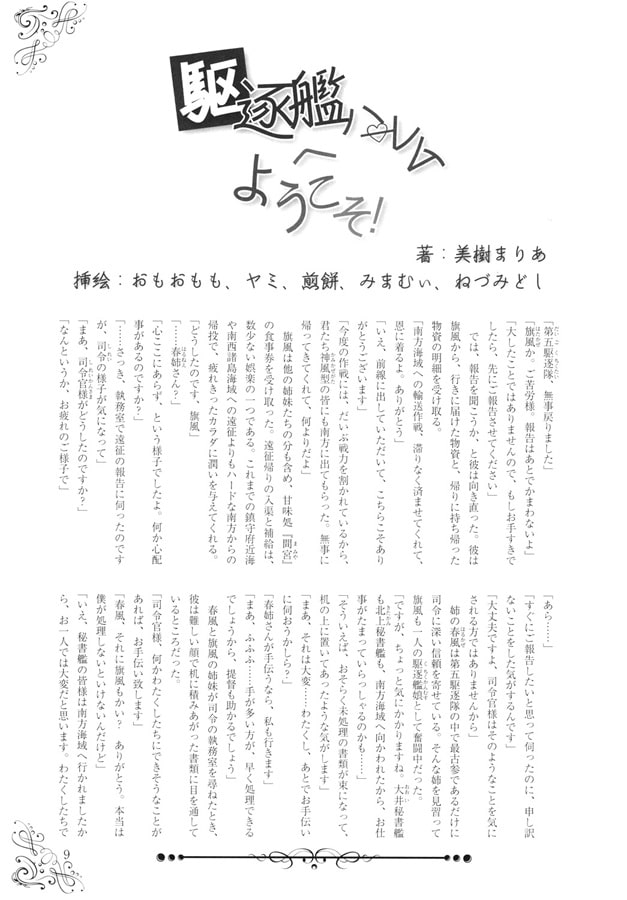 駆逐艦ハーレム
へ
ようこそ!
著:美樹まりあ
挿絵:おもおもも、ヤミ、煎餅、みまむぃ、ねづみどし
「第五駆逐隊、無事戻りました」
「旗風か、ご苦労様。報告はあとでかまわないよ」
「大したことではありませんので、もしお手すきで
したら、先にご報告させてください」
では、報告を聞こうか、と彼は向き直った。彼は
旗風から、行きに届けた物資と、帰りに持ち帰った
物資の明細を受け取る。
「南方海域への輸送作戦、滞りなく済ませてくれて、
恩に着るよ。ありがとう」
「いえ、前線に出していただいて、こちらこそあり
がとうございます」
「今度の作戦には、だいぶ戦力を割かれているから、
君たち神風型の皆にも南方に出てもらった。無事に
帰ってきてくれて、何よりだよ」
旗風は他の姉妹たちの分も含め、甘味処『間宮』
の食事券を受け取った。遠征帰りの入渠と補給は、
数少ない娯楽の一つである。これまでの鎮守府近海
や南西諸島海域への遠征よりもハードな南方からの
帰投で、疲れきったカラダに潤いを与えてくれる。
「どうしたのです、旗風」
「……春姉さん?」
「心ここにあらず、という様子でしたよ。何か心配
事があるのですか?」
「……さっき、執務室で遠征の報告に伺ったのです
が、司令の様子が気になって」
「まあ、司令官様がどうしたのですか?」
「なんというか、お疲れのご様子で」
「あら……」
「すぐにご報告したいと思って伺ったのに、申し訳
ないことをした気がするんです」
「大丈夫ですよ、司令官様はそのようなことを気に
される方ではありませんから」
姉の春風は第五駆逐隊の中で最古参であるだけに
司令に深い信頼を寄せている。そんな姉を見習って
旗風も一人の駆逐艦娘として奮闘中だった。
「ですが、ちょっと気にかかりますね。大井秘書艦
も北上秘書艦も、南方海域へ向かわれたから、お仕
事がたまっていらっしゃるのかも……」
「そういえば、おそらく未処理の書類が束になって、
机の上に置いてあったような気がします」
「まあ、それは大変……わたくし、あとでお手伝い
に伺おうかしら?」
「春姉さんが手伝うなら、私も行きます」
「まあ、ふふふ……手が多い方が、早く処理できる
でしょうから、提督も助かるでしょう」
春風と旗風の姉妹が司令の執務室を尋ねたとき、
彼は難しい顔で机に積みあがった書類に目を通して
いるところだった。
「司令官様、何かわたくしたちにできそうなことが
あれば、お手伝い致します」
「春風、それに旗風もかい? ありがとう。本当は
僕が処理しないといけないんだけど」
「いえ、秘書艦の皆様は南方海域へ行かれましたか
ら、お一人では大変だと思います。わたくしたちで
9